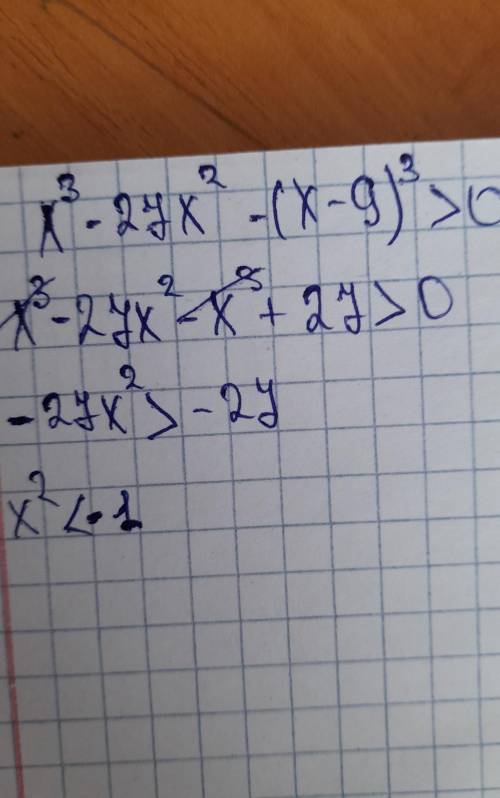 x³ - 27x² - (x - 9)³ > 0
x³ - 27x² - x³ + 27 > 0
- 27x² > - 27
x² < - 1